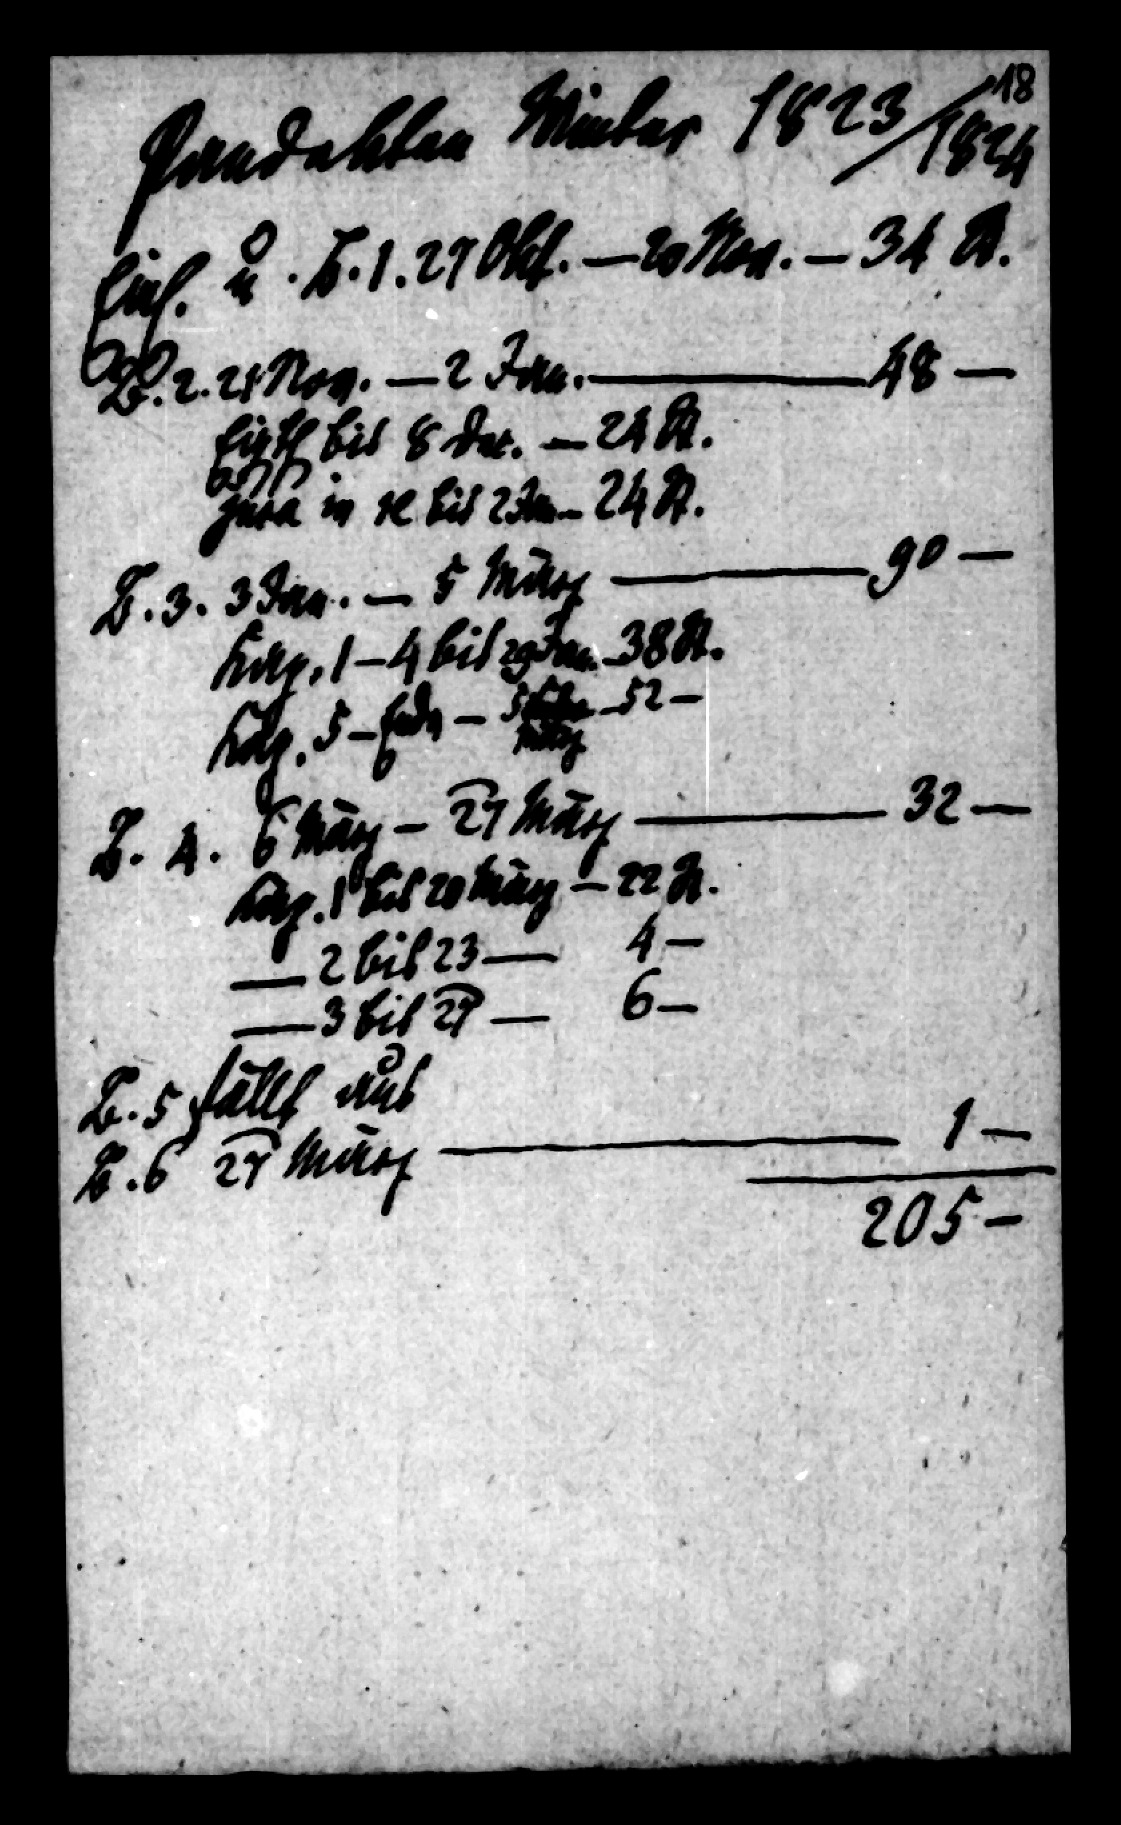 18
Pandekten Winter 1823/1824
Einl. u. B. 1. 27 Okt. — 20 Nov. — 34 St.
B. 2. 21 Nov. — 2 Jan. — 48 —
bis 8 Dec. — 24 St.
Jura in re bis 2 Jan. — 24 St.
B. 3. 3 Jan. — 5 März — 90 —
Kap. 1 — 4 bis 29 Jan. — 38 St.
Kap. 5 — Ende — 5 März — 52 —
B. 4. 6 März — 27 März — 32 —
Kap. 1 bis 20 März — 22 St.
— 2 bis 23 — 4 —
— 3 bis 27 — 6 —
B. 5 fällt aus
B. 6 27 März — 1 —
205 —